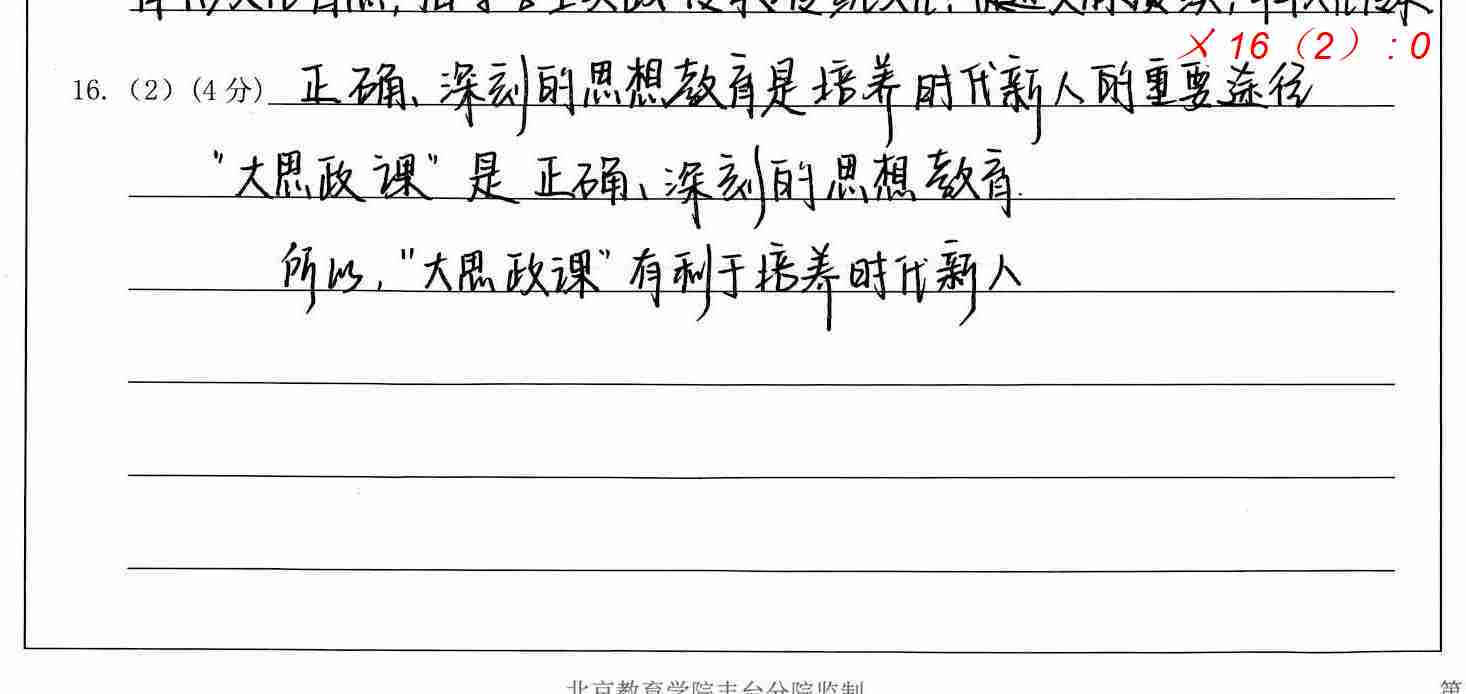 ×16（2）:0
16.（2）(4分) 正确、深刻的思想教育是培养时代新人的重要途径
"大思政课"是正确、深刻的思想教育.
所以,"大思政课"有利于培养时代新人
北京教育学院丰台分院监制
第